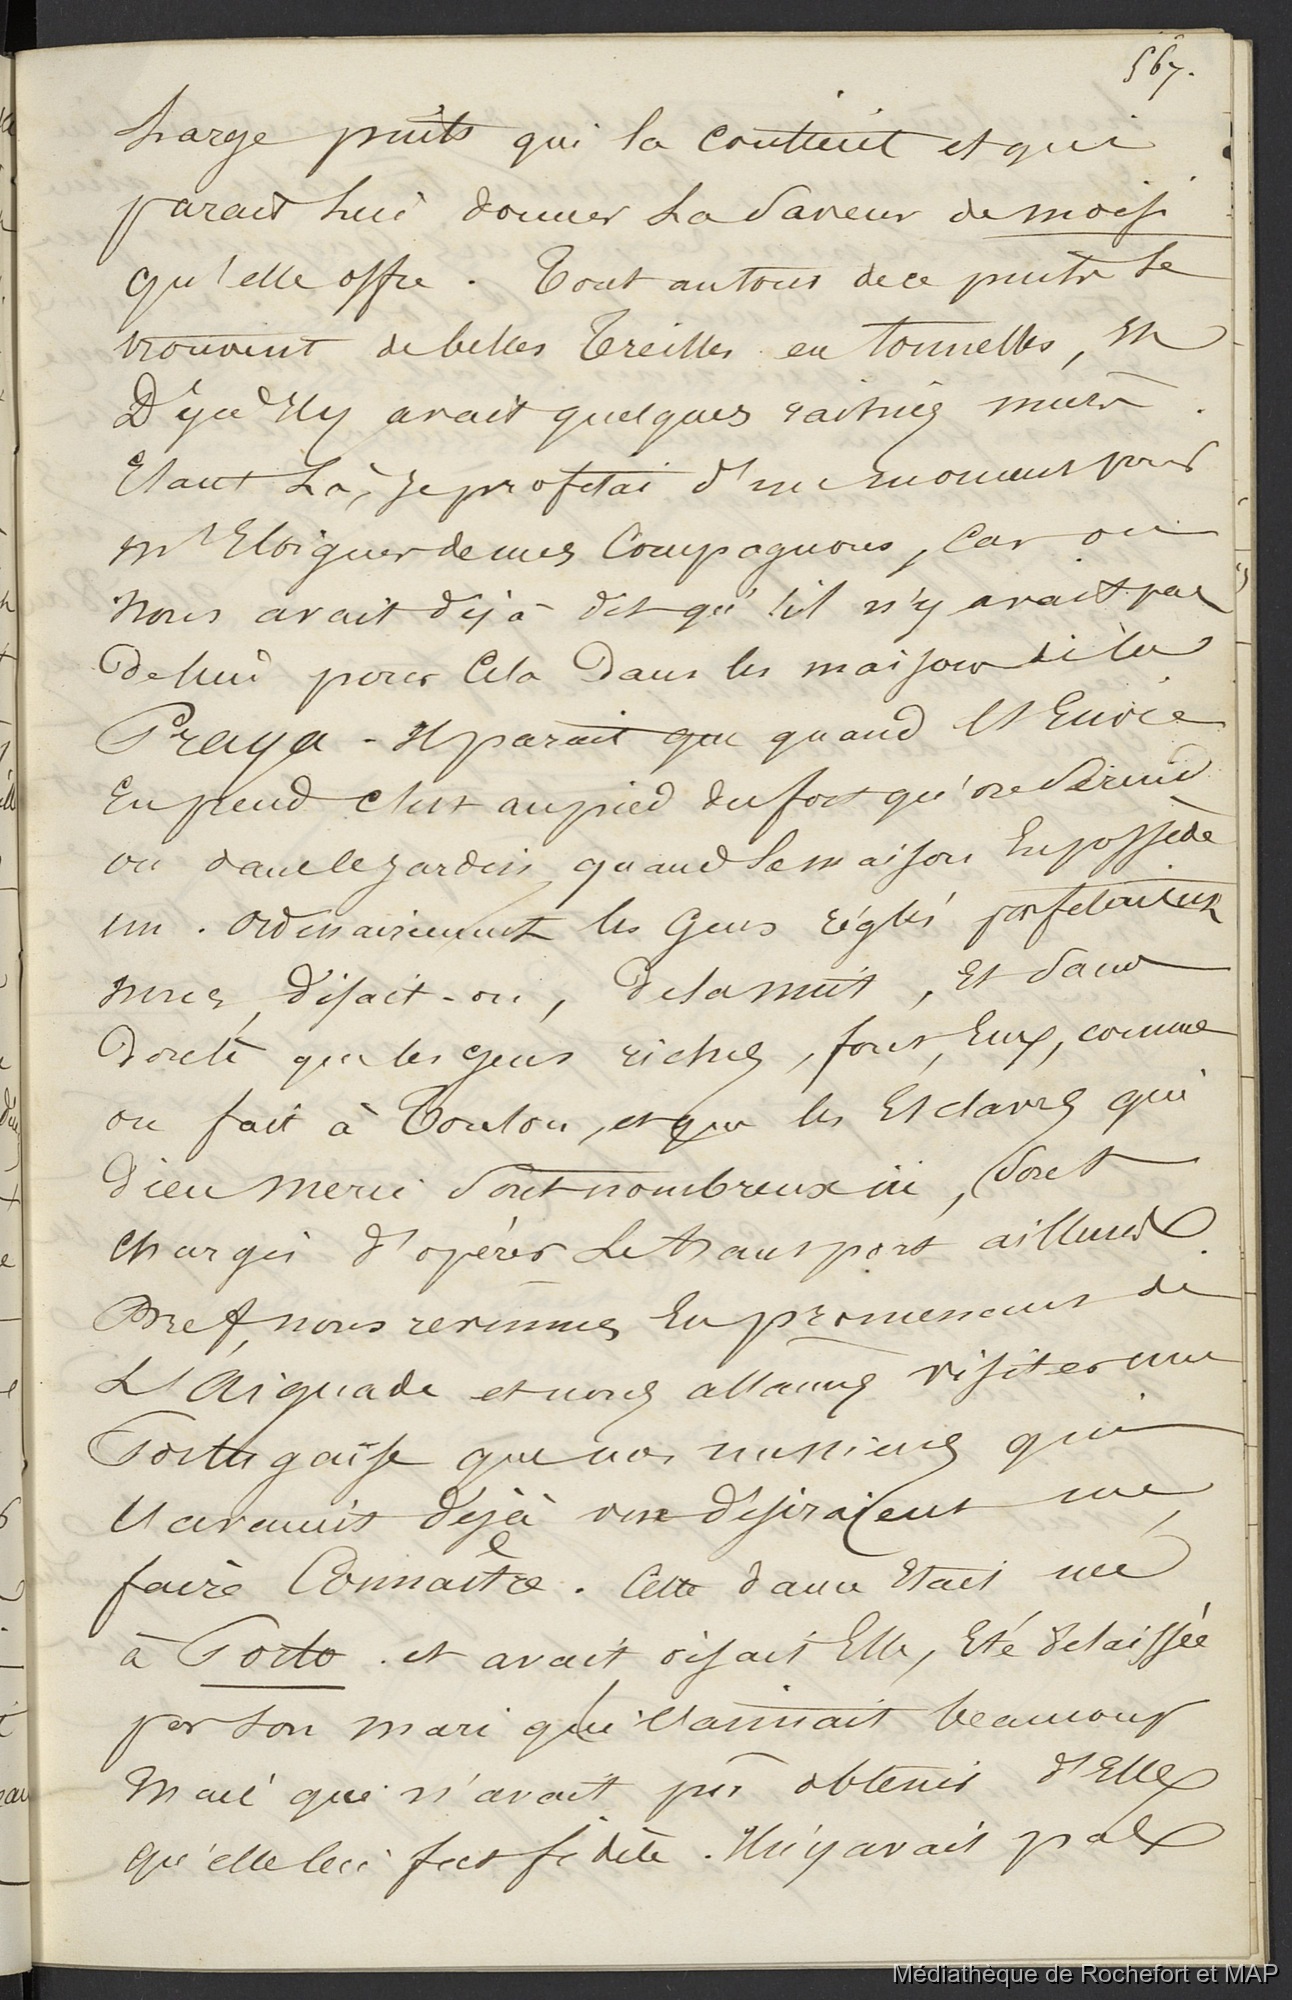 567.
Large puits qui la contient et qui
parait lui donner la saveur de moisi
qu'elle offre. Tout autour de ce puits se
trouvent de belles Treilles en tonnelles, et
Déja il y avait quelques raisins murs.
Etant Là, je profitai d'un moment pour
m'Eloigner de mes Compagnons, car on
nous avait déjà dit qu'il n'y avait pas
De lieu pour Cela Dans les maisons de la
Praya - Il parait que quand l'Envie
En prend c'est au pied du fort qu'on se rend
ou dans le jardin, quand la maison En possède
un. Ordinairement les Gens réglés profitaient
nous disait-on, De la nuit, et sans
Doute que les gens riches, font, Eux, comme
on fait à Toulon, et que les Esclaves qui
Dieu merci sont nombreux ici, sont
chargés d'opérer Le transport ailleurs.
Bref, nous revinmes En promenant de
L'Aiguade et nous allames visiter une
Portugaise que nos messieurs qui
l'avaient déjà vue désiraient me
faire Connaitre. Cette dame Etait née
à Porto. et avait disait Elle, Eté délaissée
par son mari qui l'aimait beaucoup
Mais qui n'avait pu obtenir d'Elle
qu'elle lui fut fidèle. Il n'y avait pas
Médiathèque de Rochefort et MAP